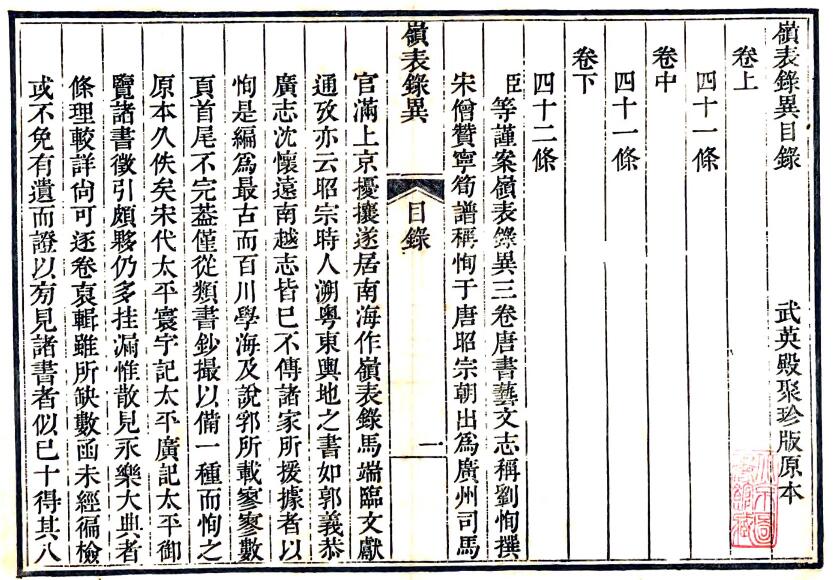 嶺表錄異目錄
武英殿聚珍版原本
卷上
四十一條
卷中
四十一條
卷下
四十二條
臣等謹案嶺表錄異三卷唐書藝文志稱劉恂撰
宋僧贊寧筍譜稱恂于唐昭宗朝出為廣州司馬
嶺表錄異
目錄
一
官滿上京擾攘遂居南海作嶺表錄馬端臨文獻
通攷亦云昭宗時人溯粵東輿地之書如郭義恭
廣志沈懷遠南越志皆已不傳諸家所援據者以
恂是編為最古而百川學海及說郛所載寥寥數
頁首尾不完葢僅從類書鈔撮以備一種而恂之
原本久佚矣宋代太平寰宇記太平廣記太平御
覽諸書徵引頗夥仍多挂漏惟散見永樂大典者
條理較詳尙可逐卷裒輯雖所缺數函未經徧檢
或不免有遺而證以旁見諸書者似已十得其八